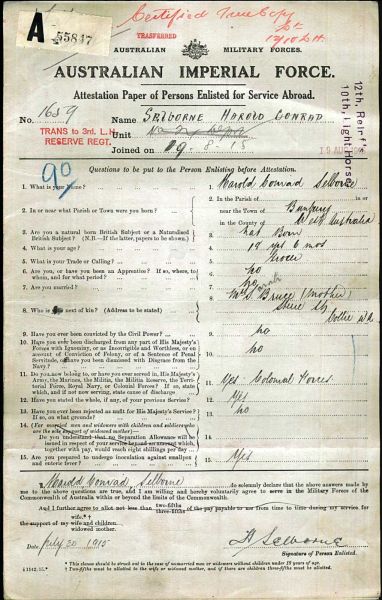 A 55847
Certified True Copy
TRANSFERRED
AUSTRALIAN MILITARY FORCES.
AUSTRALIAN IMPERIAL FORCE.
Attestation Paper of Persons Enlisted for Service Abroad.
No. 1659 Name SELBORNE HAROLD CONRAD
TRANS to 3rd. L.H. RESERVE REGT.
Unit
Joined on 19-8-15
12th. Reinf's
10th. Light Horse
19 AUG
90
Questions to be put to the Person Enlisting before Attestation.
1. What is your Name? 1. Harold Conrad Selborne
2. In or near what Parish or Town were you born? 2. In the Parish of
near the Town of Bunbury
in the County of West Australia
3. Are you a natural born British Subject or a Naturalised
British Subject? (N.B.—If the latter, papers to be shown). 3. Nat Born
4. What is your age? 4. 19 yrs 6 mos
5. What is your Trade or Calling? 5. Grocer
6. Are you, or have you been an Apprentice? If so, where, to
whom, and for what period? 6. no
7. Are you married? 7. no
8. Who is next of kin? (Address to be stated) 8. Mrs Sarah Bruce (mother)
Collie W.A.
9. Have you ever been convicted by the Civil Power? 9. no
10. Have you ever been discharged from any part of His Majesty's
Forces with Ignominy, or as Incorrigible and Worthless, or on
account of Conviction of Felony, or of a Sentence of Penal
Servitude, or have you been dismissed with Disgrace from the
Navy? 10. no
11. Do you now belong to, or have you ever served in, His Majesty's
Army, the Marines, the Militia, the Militia Reserve, the Terri-
torial Force, Royal Navy, or Colonial Forces? If so, state
which, and if not now serving, state cause of discharge 11. Yes Colonial Forces
12. Have you stated the whole, if any, of your previous Service? 12. Yes
13. Have you ever been rejected as unfit for His Majesty's Service? If
so, on what grounds? 13. no
14. (For married men and widowers with children and soldiers who
are the sole support of widowed mother)—
Do you understand that no Separation Allowance will be
issued in respect of your service beyond an amount which,
together with pay, would reach eight shillings per day? 14.
15. Are you prepared to undergo inoculation against smallpox
and enteric fever? 15. Yes
I, Harold Conrad Selborne do solemnly declare that the above answers made by
me to the above questions are true, and I am willing and hereby voluntarily agree to serve in the Military Forces of the
Commonwealth of Australia within or beyond the limits of the Commonwealth.
And I further agree to allot not less than two-fifths
three-fifths of the pay payable to me from time to time during my service for
the support of my wife*
wife and children.
widowed mother.
Date July 20 1915 H Selborne
Signature of Person Enlisted.
* This clause should be struck out in the case of unmarried men or widowers without children under 18 years of age.
† Two-fifths must be allotted to the wife or widowed mother, and if there are children three-fifths must be allotted.